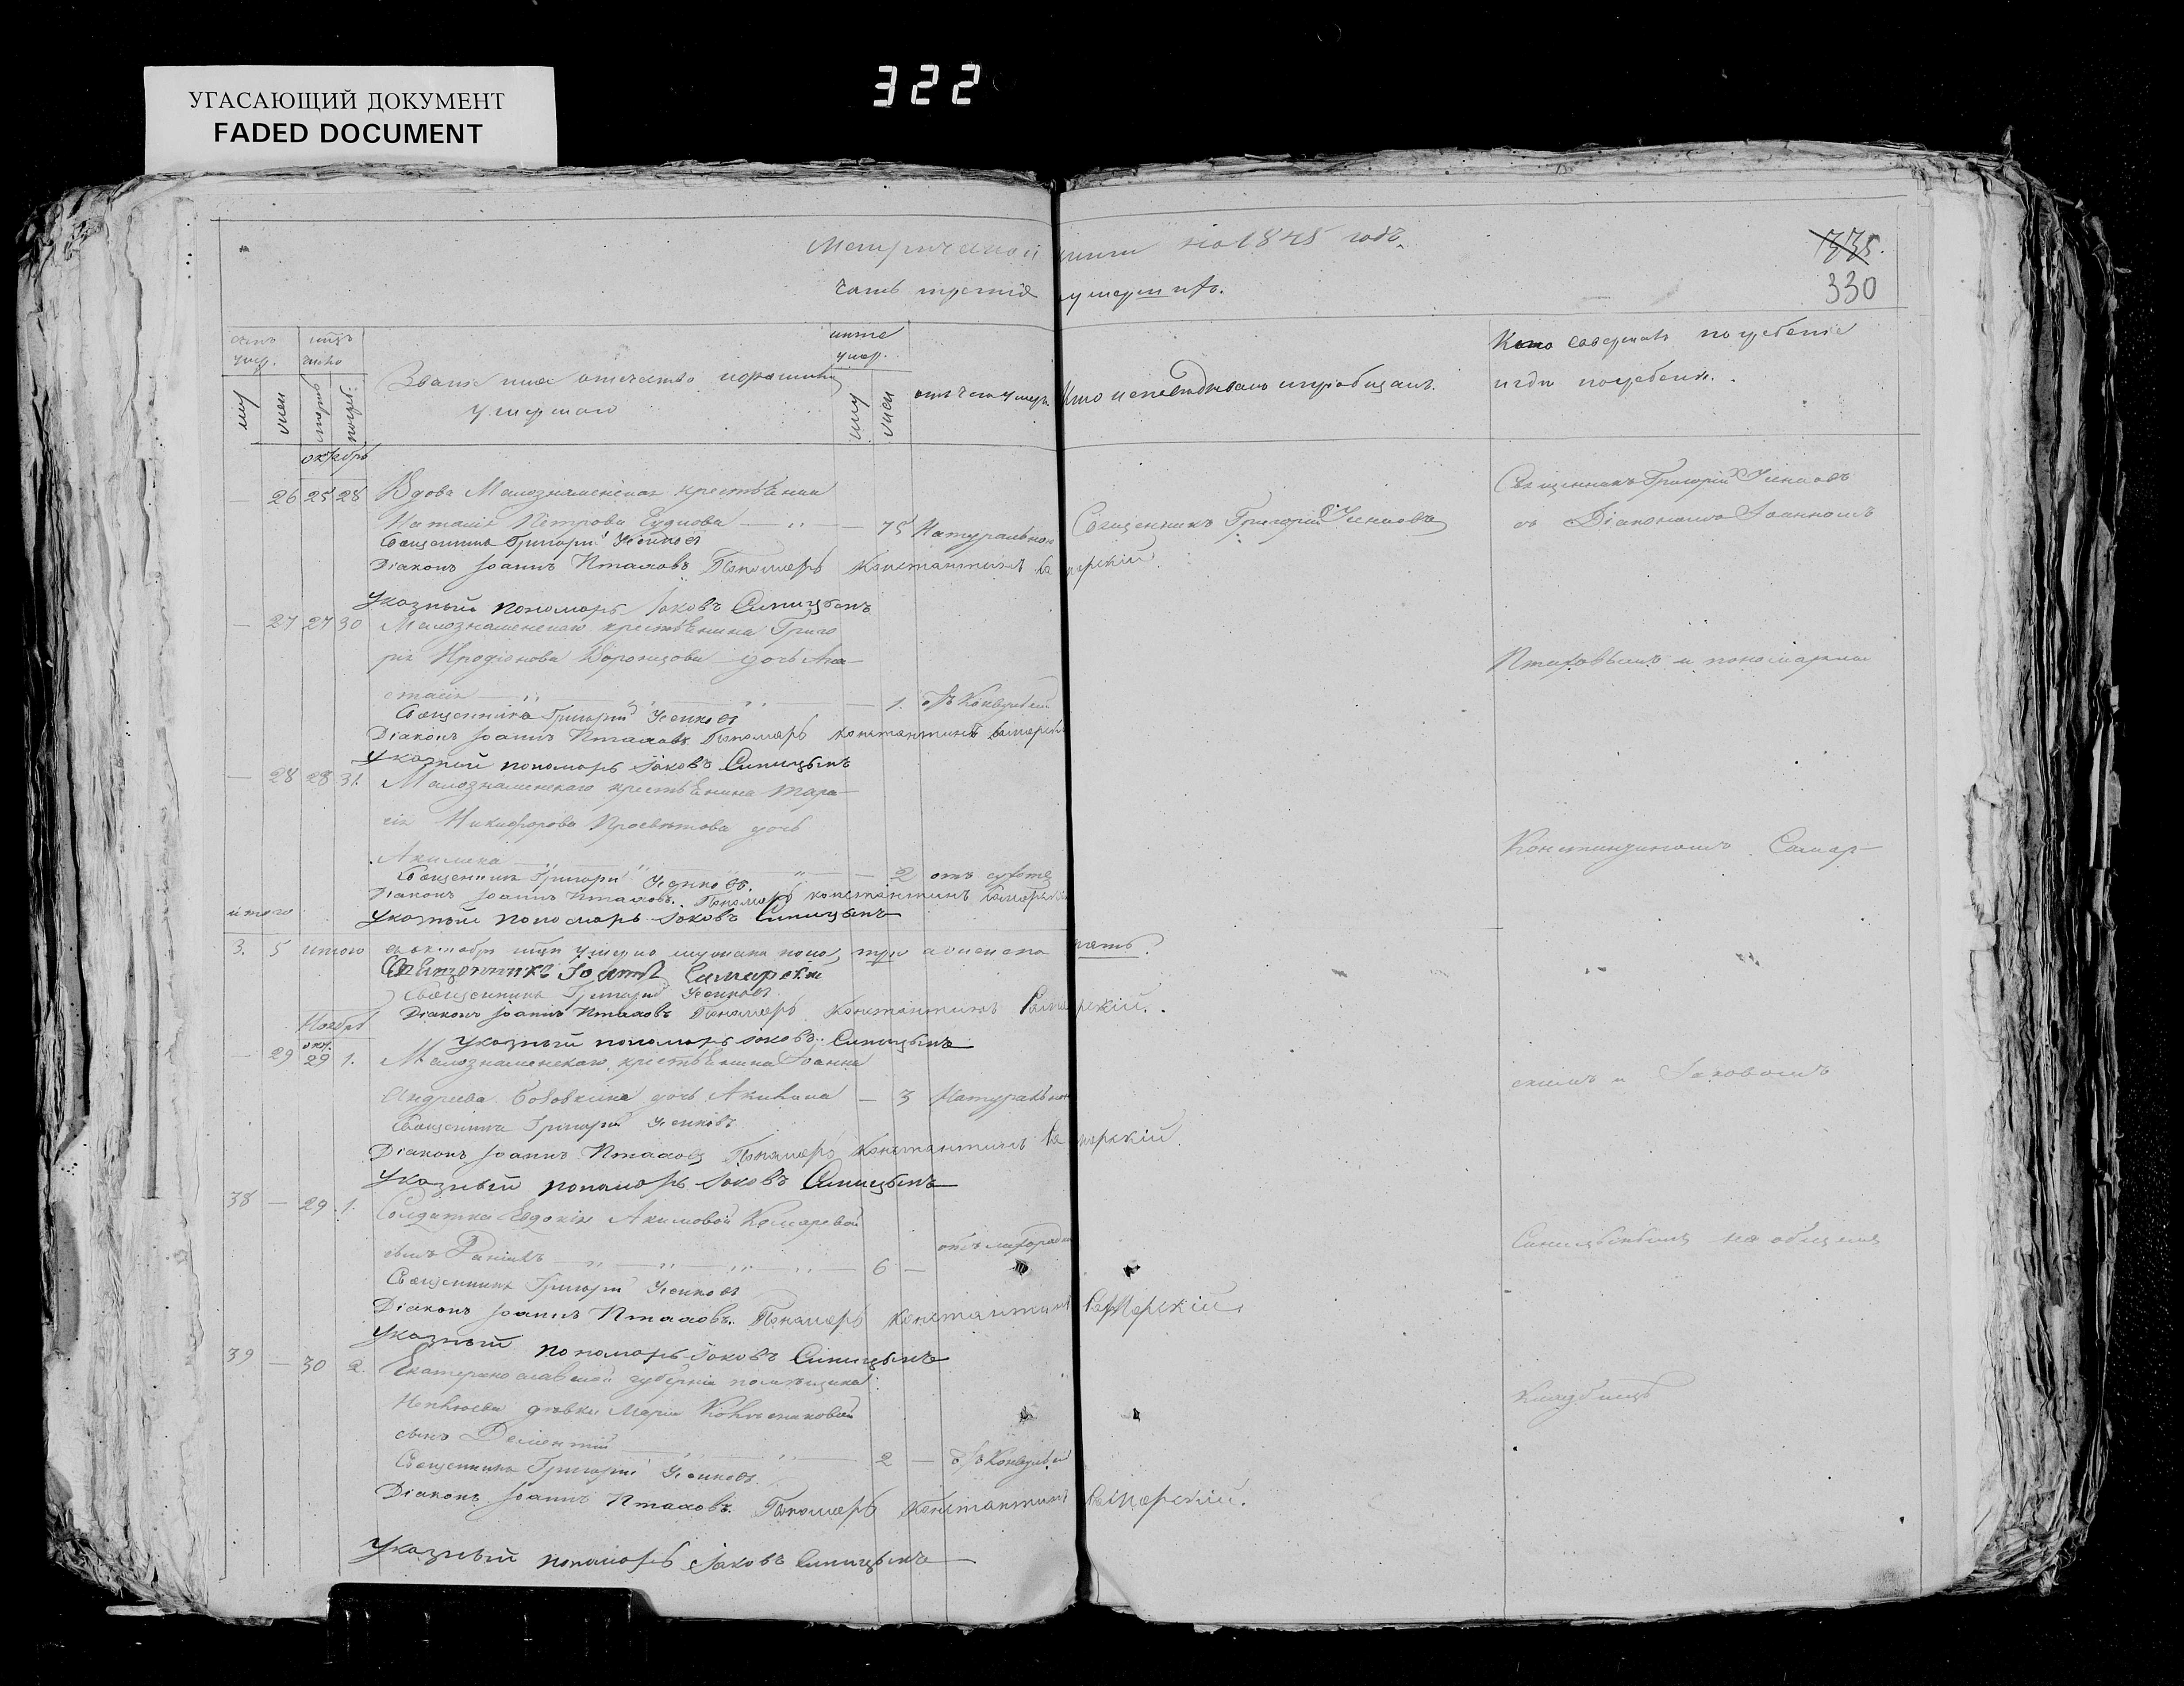 322
УГАСАЮЩИЙ ДОКУМЕНТ
FADED DOCUMENT
Метрической книги на 1845 годъ.
335.
330
часть третiя умершихъ.
умер.
число
Званiе имя отчество
умершаго
умер.
отъ чего умеръ
Кто исповедывалъ и прiобщалъ.
Кто совершалъ погребенiе
и где погребены.
октябрь
— 26 25 28 Вдова Малознаменская крестьянка
Наталiя Петрова — 75 Натуральной
Священникъ Григорiй Усенковъ
Священникъ Григорiй Усенковъ
съ Дiакономъ Iоанномъ
Священникъ Григорiй Усенковъ
Дiаконъ Iоаннъ Птаховъ Пономарь Константинъ Самарскiй.
Указный пономарь Iаковъ Синицынъ
— 27 27 30 Малознаменскаго крестьянина Григо
рiя Иродiонова дочь Ана
стасiя — 1. отъ Конвульсiи
Птаховымъ и пономарями
Священникъ Григорiй Усенковъ
Дiаконъ Iоаннъ Птаховъ. Пономарь Константинъ Самарскiй
Указный пономарь Iаковъ Синицынъ
— 28 28 31. Малознаменскаго крестьянина Тара
сiя Никифорова дочь
Акилина — 2 отъ
Константиномъ Самар-
Священникъ Григорiй Усенковъ.
Дiаконъ Iоаннъ Птаховъ. Пономарь Константинъ Самарскiй
Указный пономарь Iаковъ Синицынъ
итого
3. 5 итого въ октябре умерло мужеска пола, три а женска пять.
Священникъ Iоаннъ Самарскiй
Священникъ Григорiй Усенковъ.
Дiаконъ Iоаннъ Птаховъ Пономарь Константинъ Самарскiй.
Указный пономарь Iаковъ Синицынъ
Ноябрь
окт.
— 29 29 1. Малознаменскаго крестьянина Iоанна
Андреева дочь Акилина — 3 Натуральной
скимъ и Iаковомъ
Священникъ Григорiй Усенковъ
Дiаконъ Iоаннъ Птаховъ Пономарь Константинъ Самарскiй.
Указный пономарь Iаковъ Синицынъ
38 — 29. 1. Солдатки Евдокiи Акимовой Комаревой
сынъ Данiилъ — 6 — отъ лихорадки
Синицынымъ на общемъ
Священникъ Григорiй Усенковъ
Дiаконъ Iоаннъ Птаховъ. Пономарь Константинъ Самарскiй.
Указный пономарь Iаковъ Синицынъ
39 — 30 2. Екатеринославской губернiи помещика
девки Марiи
сынъ Дементiй — 2 — отъ Конвульсiи
Кладбище
Священникъ Григорiй Усенковъ.
Дiаконъ Iоаннъ Птаховъ. Пономарь Константинъ Самарскiй.
Указный пономарь Iаковъ Синицынъ